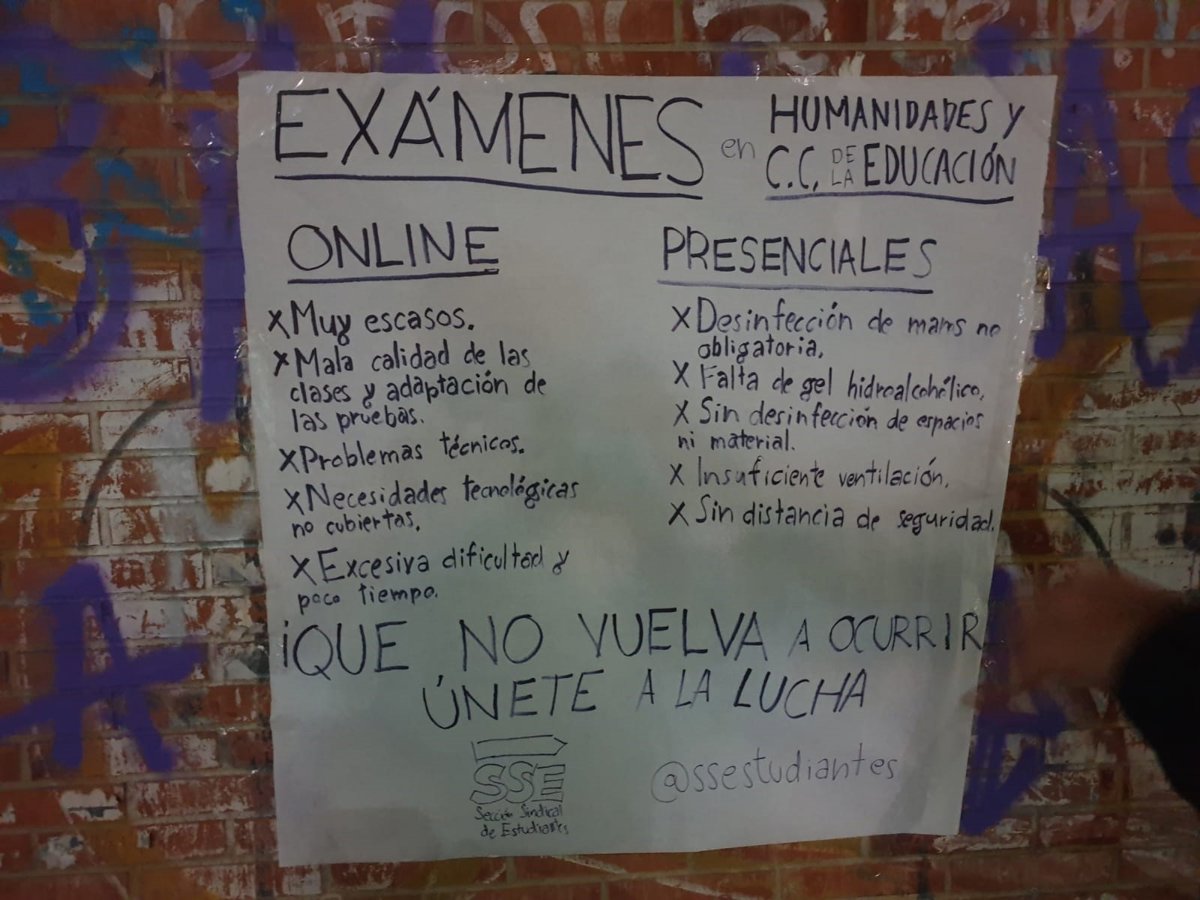 EXÁMENES en HUMANIDADES Y
C.C. DE LA EDUCACIÓN
ONLINE
X Muy escasos.
X Mala calidad de las
clases y adaptación de
las pruebas.
X Problemas técnicos.
X Necesidades tecnológicas
no cubiertas.
X Excesiva dificultad y
poco tiempo.
PRESENCIALES
X Desinfección de manos no
obligatoria.
X Falta de gel hidroalcohólico.
X Sin desinfección de espacios
ni material.
X Insuficiente ventilación.
X Sin distancia de seguridad.
¡QUE NO VUELVA A OCURRIR
ÚNETE A LA LUCHA
SSE
Sección Sindical
de Estudiantes
@ssestudiantes